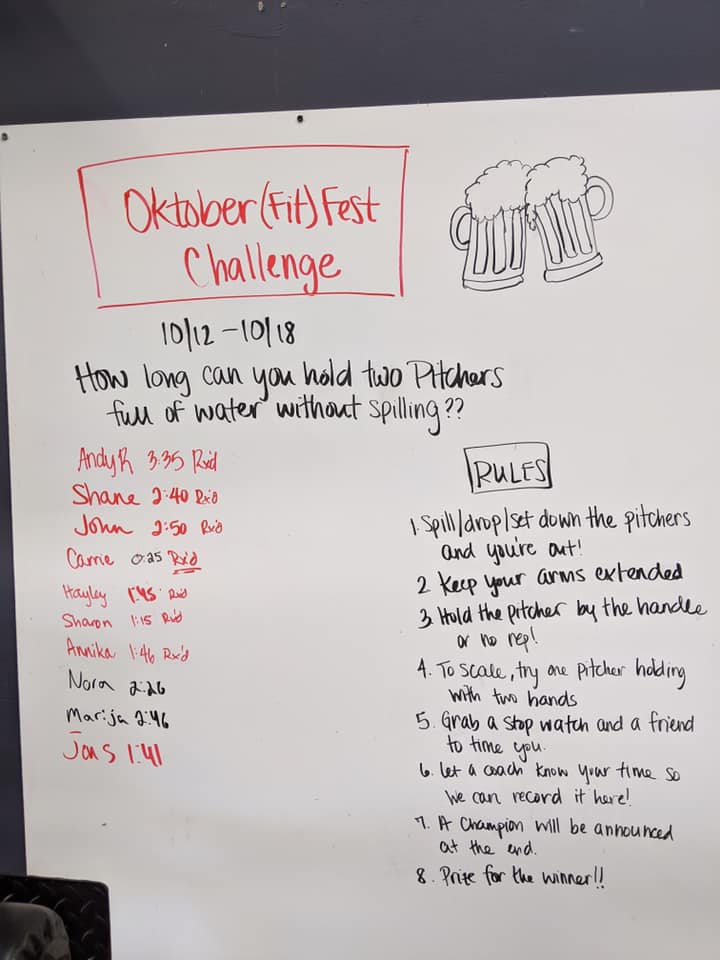 Oktober(Fit)Fest
Challenge
10/12 - 10/18
How long can you hold two Pitchers
full of water without spilling??
Andy R 3:35 Rx'd
Shane 2:40 Rx'd
John 2:50 Rx'd
Carrie 0:25 Rx'd
Hayley 1:45 Rx'd
Sharon 1:15 Rx'd
Annika 1:46 Rx'd
Nora 2:26
Marija 2:46
Jon S 1:41
RULES
1. Spill/drop/set down the pitchers
and you're out!
2 Keep your arms extended
3. Hold the pitcher by the handle
or no rep!
4. To scale, try one pitcher holding
with two hands
5. Grab a stop watch and a friend
to time you.
6. Let a coach know your time so
we can record it here!
7. A Champion will be announced
at the end.
8. Prize for the winner!!